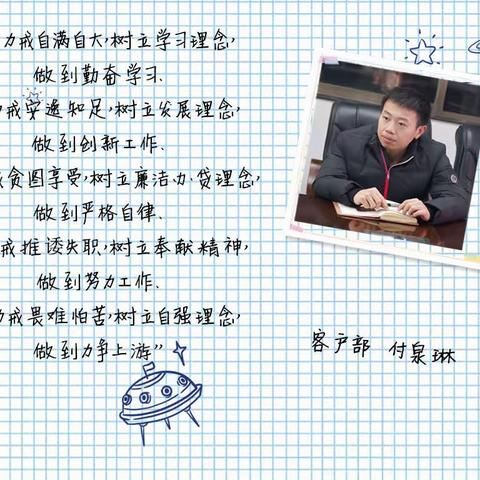 力戒自满自大,树立学习理念,
做到勤奋学习.
力戒安逸知足,树立发展理念,
做到创新工作.
戒贪图享受,树立廉洁办贷理念,
做到严格自律.
戒推诿失职,树立奉献精神,
做到努力工作.
力戒畏难怕苦,树立自强理念,
做到力争上游”
客户部 付泉琳